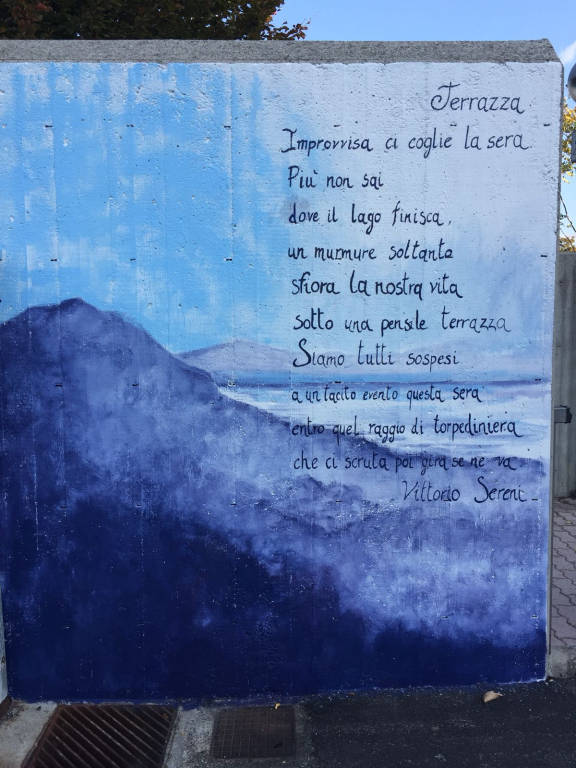 Terrazza
Improvvisa ci coglie la sera
Più non sai
dove il lago finisca,
un murmure soltanto
sfiora la nostra vita
sotto una pensile terrazza
Siamo tutti sospesi
a un tacito evento questa sera
entro quel raggio di torpediniera
che ci scruta poi gira se ne va
Vittorio Sereni